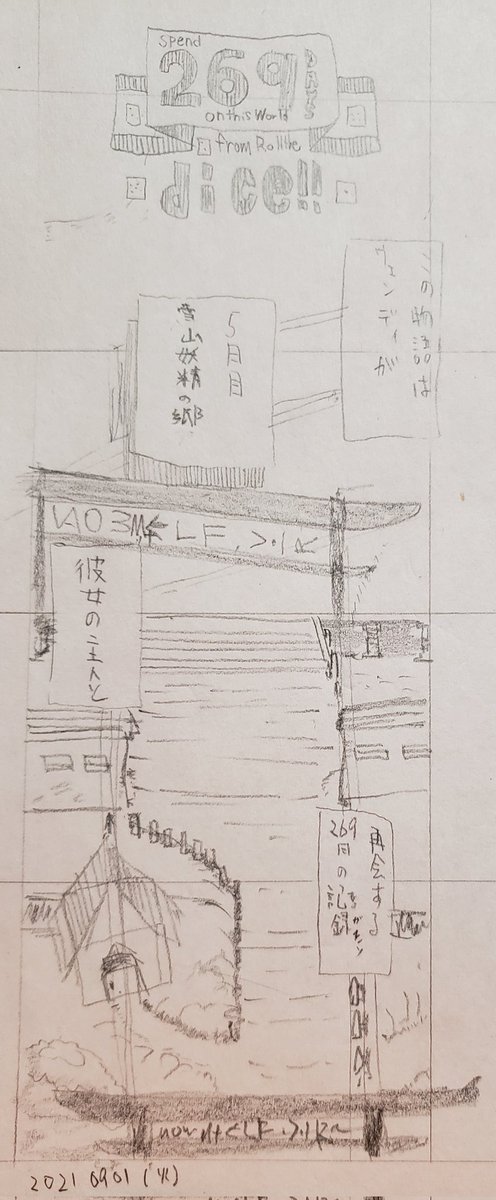 Spend
269
DAYS!
on this World
from Roll the
dice!!
この物語は
ヴェンディが
5日目
雪山妖精の郷
彼女の主人と
再会する
269日の記録
ものがたり
2021 0901 (水)